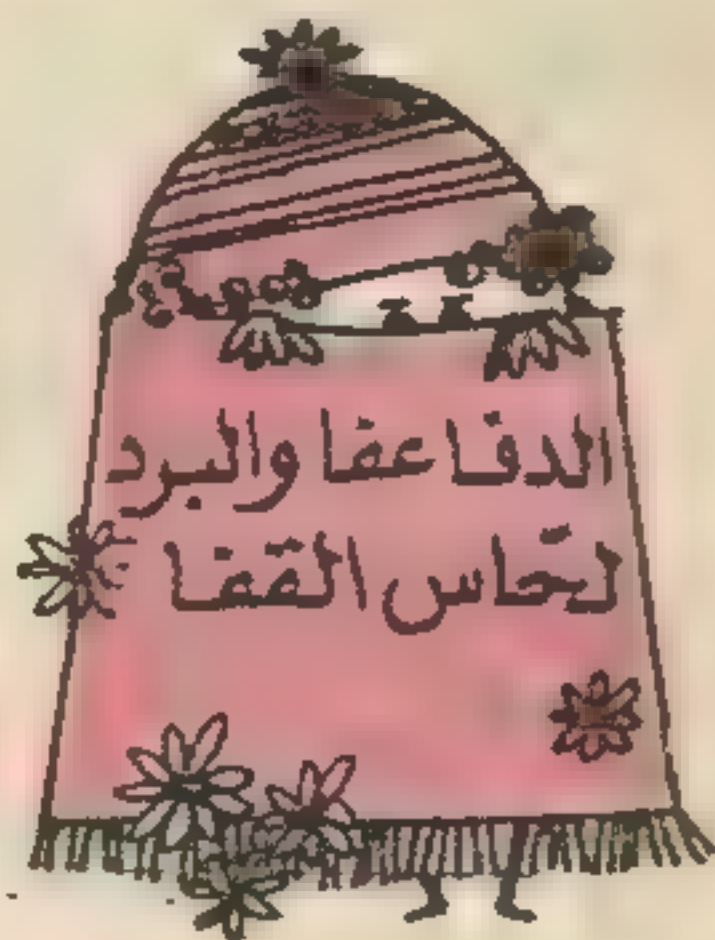 الدفا عفا والبرد
لحّاس القفا